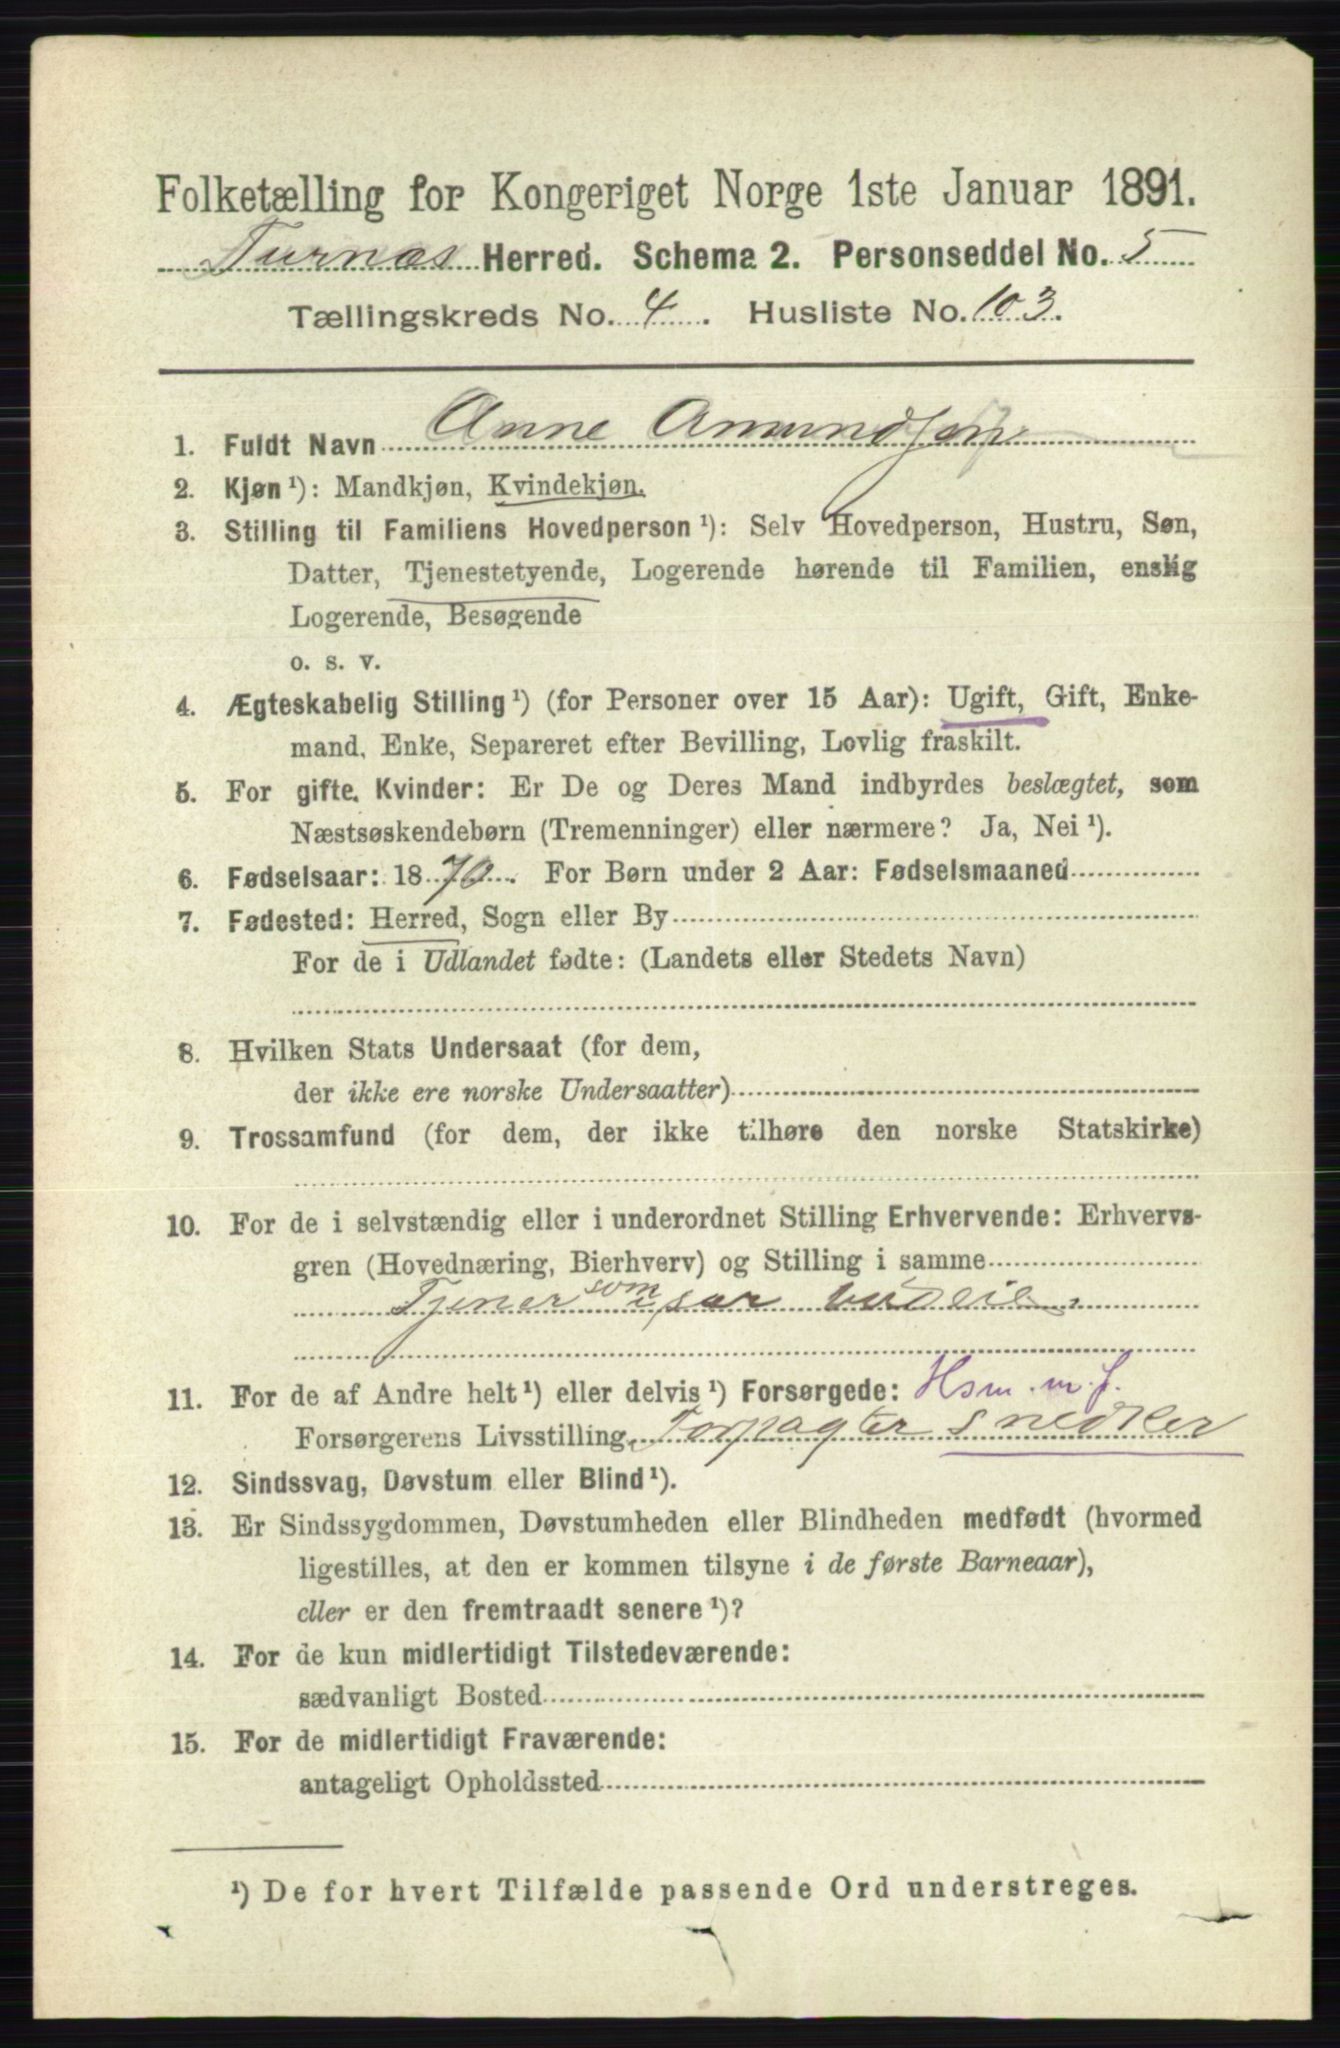 Folketælling for Kongeriget Norge 1ste Januar 1891.
Furnæs Herred. Schema 2. Personseddel No. 5
Tællingskreds No. 4. Husliste No. 103.
1. Fuldt Navn Anne Amundsen
2. Kjøn ¹): Mandkjøn, Kvindekjøn.
3. Stilling til Familiens Hovedperson ¹): Selv Hovedperson, Hustru, Søn,
Datter, Tjenestetyende, Logerende hørende til Familien, enslig
Logerende, Besøgende
o. s. v.
4. Ægteskabelig Stilling ¹) (for Personer over 15 Aar): Ugift, Gift, Enke-
mand, Enke, Separeret efter Bevilling, Lovlig fraskilt.
5. For gifte Kvinder: Er De og Deres Mand indbyrdes beslægtet, som
Næstsøskendebørn (Tremenninger) eller nærmere? Ja, Nei ¹).
6. Fødselsaar: 1870. For Børn under 2 Aar: Fødselsmaaned
7. Fødested: Herred, Sogn eller By
For de i Udlandet fødte: (Landets eller Stedets Navn)
8. Hvilken Stats Undersaat (for dem,
der ikke ere norske Undersaatter)
9. Trossamfund (for dem, der ikke tilhøre den norske Statskirke)
10. For de i selvstændig eller i underordnet Stilling Erhvervende: Erhvervs-
gren (Hovednæring, Bierhverv) og Stilling i samme
Tjener som budeie
11. For de af Andre helt ¹) eller delvis ¹) Forsørgede: Hsm. m. j.
Forsørgerens Livsstilling, Forpagter snedker
12. Sindssvag, Døvstum eller Blind ¹).
13. Er Sindssygdommen, Døvstumheden eller Blindheden medfødt (hvormed
ligestilles, at den er kommen tilsyne i de første Barneaar),
eller er den fremtraadt senere ¹)?
14. For de kun midlertidigt Tilstedeværende:
sædvanligt Bosted
15. For de midlertidigt Fraværende:
antageligt Opholdssted
¹) De for hvert Tilfælde passende Ord understreges.